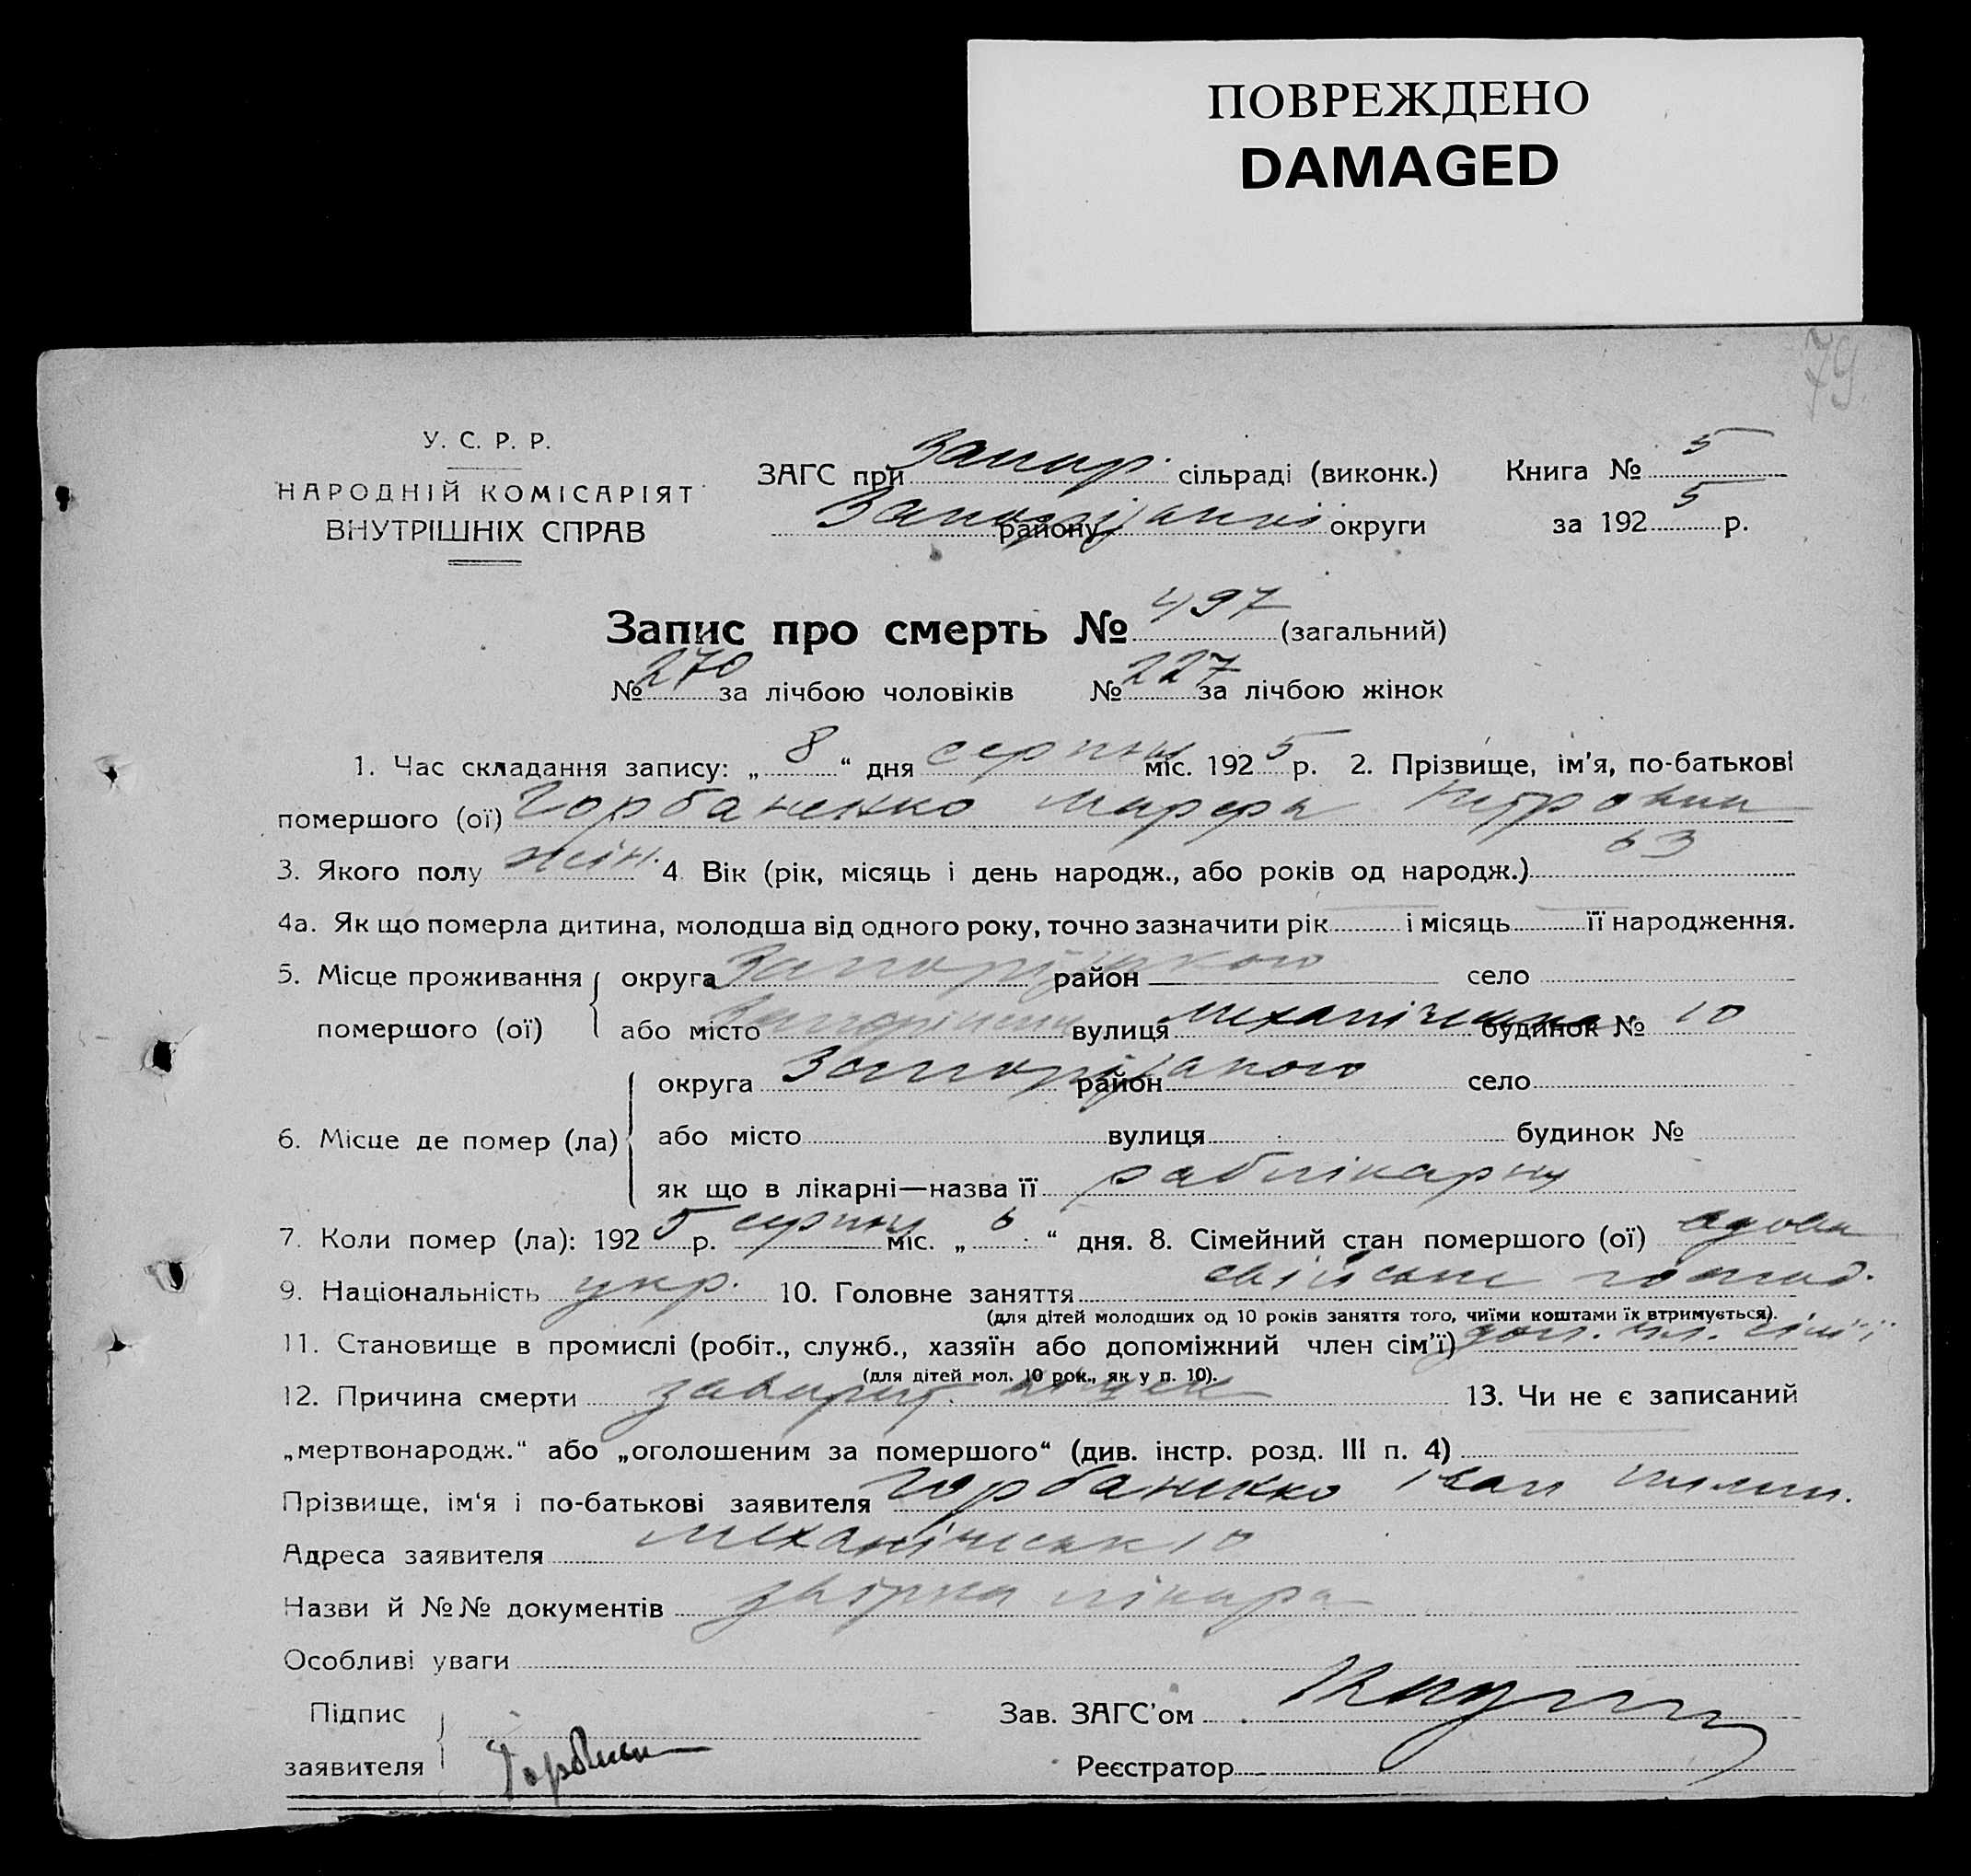 ПОВРЕЖДЕНО
DAMAGED
79
У. С. Р. Р.
НАРОДНІЙ КОМІСАРІЯТ
ВНУТРІШНІХ СПРАВ
ЗАГС при Запор. сільраді (виконк.) Книга № 5
району округи за 192 5 р.
Запис про смерть № 497 (загальний)
№ 270 за лічбою чоловіків № 227 за лічбою жінок
1. Час складання запису: „ 8 “ дня серпня міс. 192 5 р. 2. Прізвище, ім’я, по-батькові
помершого (ої) Горбаненко Марфа Петровна
3. Якого полу жін. 4 Вік (рік, місяць і день народж., або років од народж.) 63
4а. Як що померла дитина, молодша від одного року, точно зазначити рік і місяць її народження.
5. Місце проживання округа район село
помершого (ої) або місто вулиця будинок № 10
округа район село
6. Місце де помер (ла) або місто вулиця будинок №
як що в лікарні—назва її раблікарня
7. Коли помер (ла): 192 5 р. серпня міс. „ 6 “ дня. 8. Сімейний стан помершого (ої) вдова
9. Національність укр. 10. Головне заняття
(для дітей молодших од 10 років заняття того, чиїми коштами їх втримується).
11. Становище в промислі (робіт., служб., хазяїн або допоміжний член сім’ї) доп. чл. сім'ї
(для дітей мол. 10 рок., як у п. 10).
12. Причина смерти 13. Чи не є записаний
„мертвонародж.“ або „оголошеним за помершого“ (див. інстр. розд. III п. 4)
Прізвище, ім‘я і по-батькові заявителя Горбаненко Іван
Адреса заявителя Механічеськ 10
Назви й №№ документів лікаря
Особливі уваги
Підпис Зав. ЗАГС’ом
заявителя Реєстратор